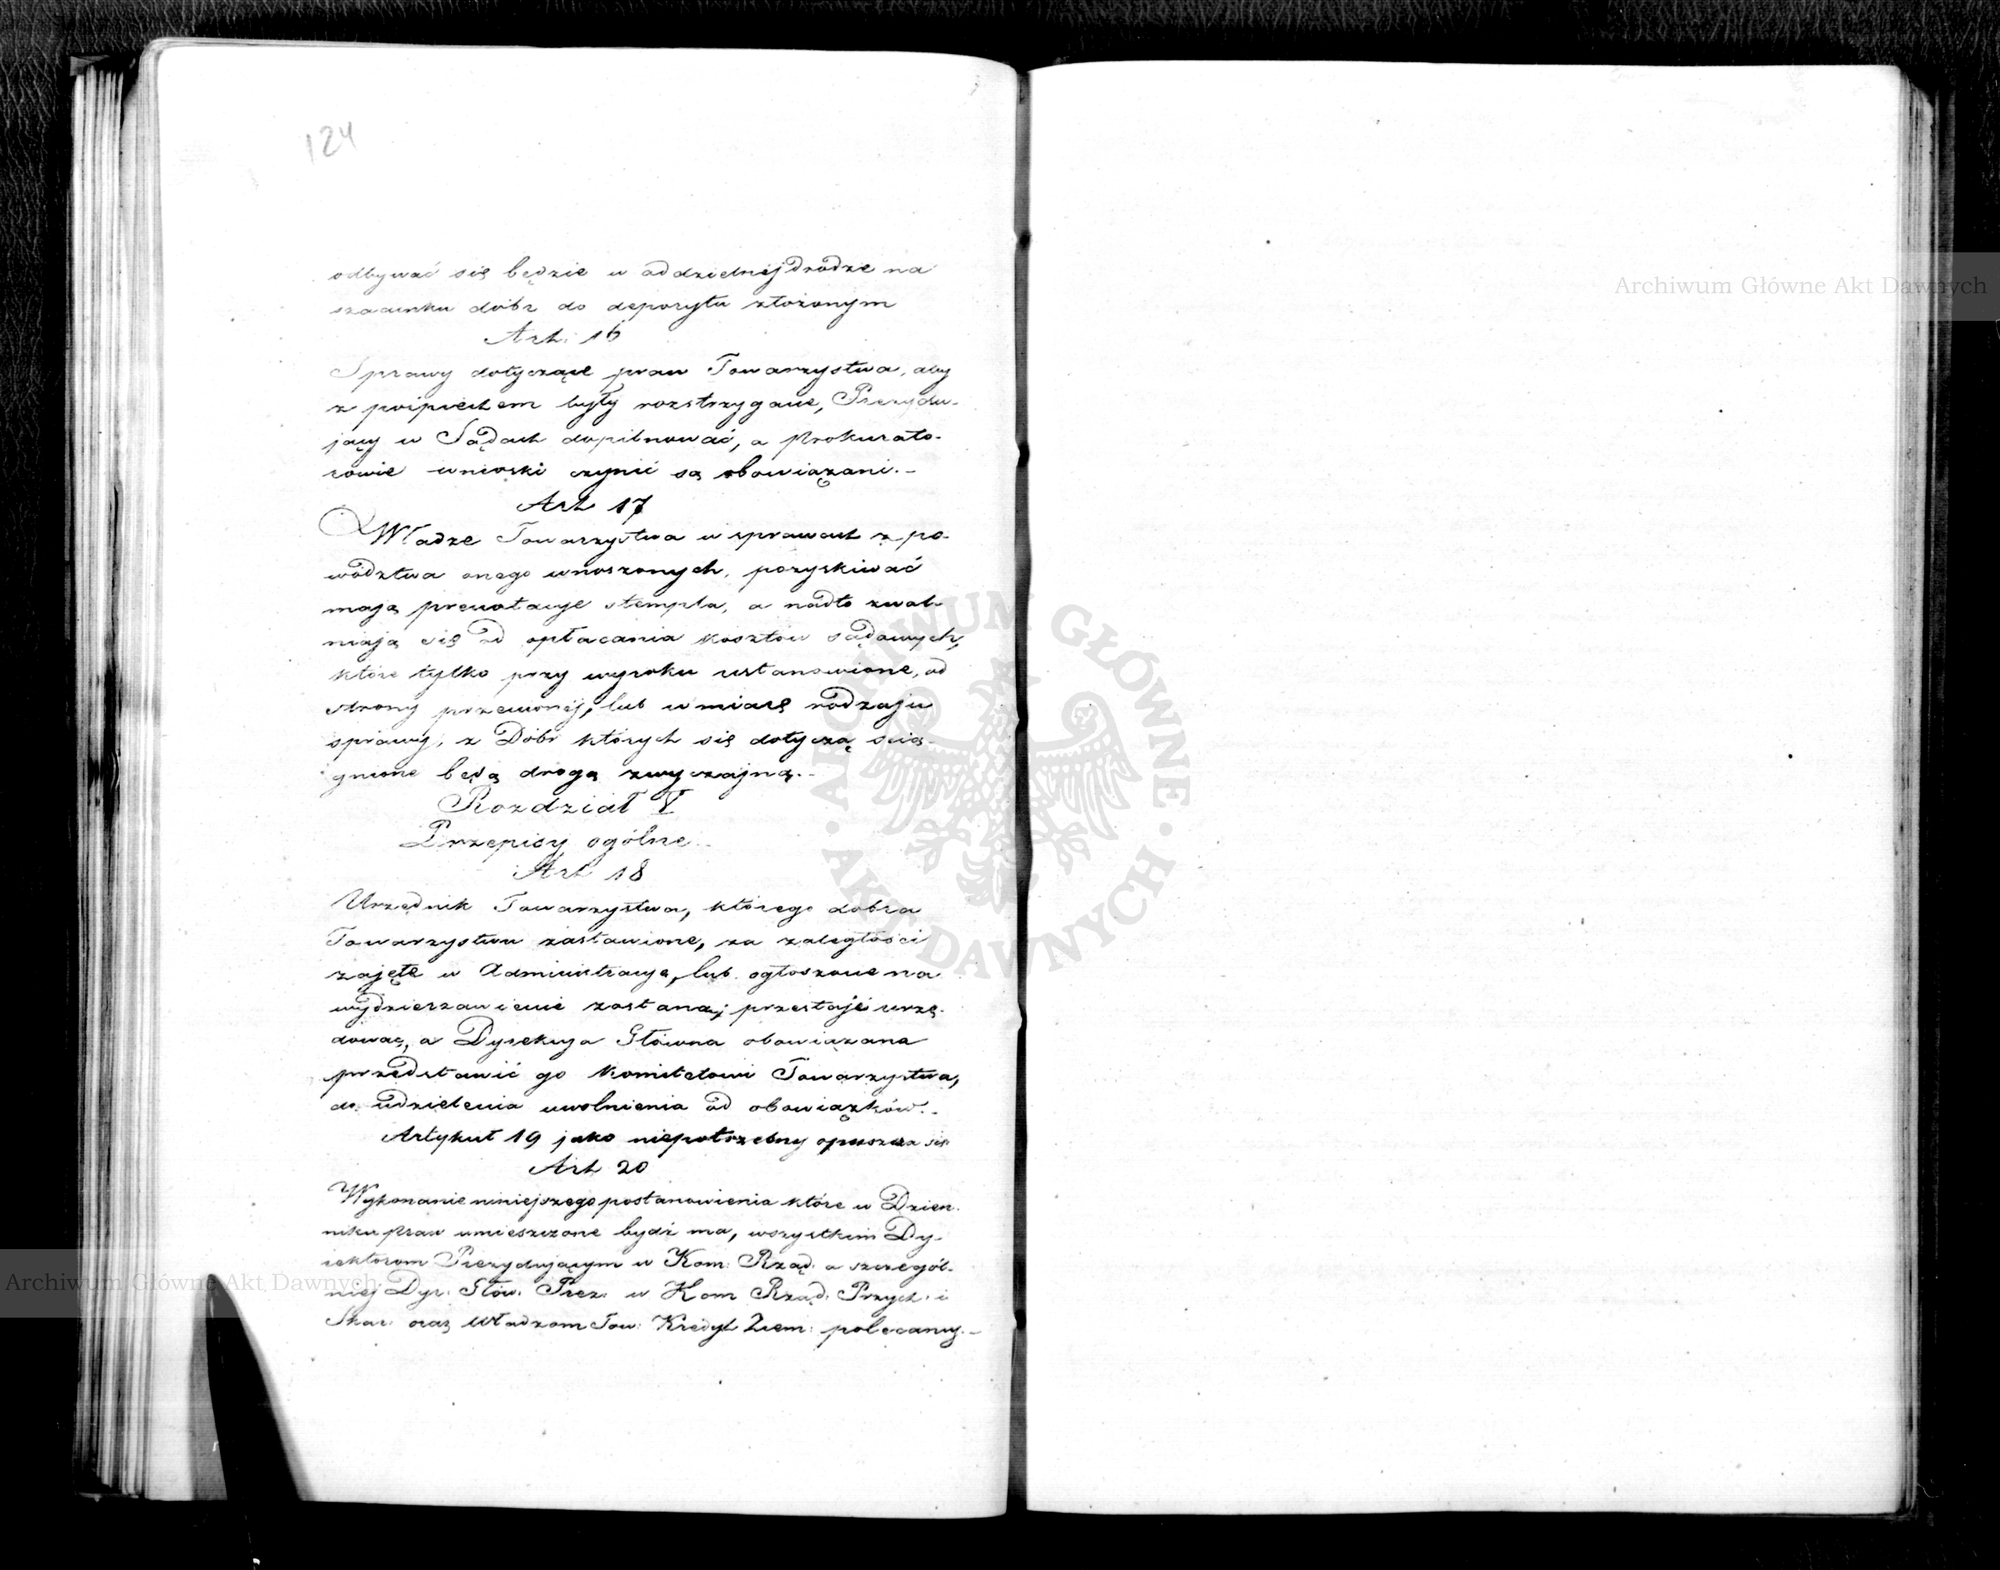 124
odbywać się będzie w oddzielnéj drodze na
szacunku dóbr do depozytu złożonym
Art: 16
Sprawy dotyczące praw Towarzystwa, aby
z pośpiechem były rozstrzygane, Prezydu-
jący w Sądach dopilnować, a Prokurato-
rowie wnioski czynić są obowiązani.-
Art 17
Władze Towarzystwa w sprawach z po-
wództwa onego wnoszonych, pozyskiwać
mają prenotacye stempla, a nadto zwal-
niają się od opłacania kosztów sądowych,
które tylko przy wyroku ustanowione, od
strony przewonéj, lub w miarę rodzaju
sprawy, z Dóbr których się dotyczą ścią-
gnione będą drogą zwyczajną.-
Rozdział V
Przepisy ogólne.-
Art 18
Urzędnik Towarzystwa, którego dobra
Towarzystwu zastawione, za zaległości
zajęte w Administracye, lub ogłoszone na
wydzierzawienie zostaną; przestaje urzę-
dować, a Dyrekcya Główna obowiązana
przedstawić go Komitetowi Towarzystwa,
do udzielenia uwolnienia od obowiązków.-
Artykuł 19 jako niepotrzebny opuszcza się
Art 20
Wykonanie niniejszego postanowienia które w Dzien-
niku praw umieszczone bydź ma, wszystkim Dy-
rektorom Prezydującym w Kom: Rząd: a szczegól-
niéj Dyr: Głów: Prez: w Kom Rząd: Przych: i
Skar: oraz Władzom Tow: Kredyt Ziem: polecamy.-
Archiwum Główne Akt Dawnych
Archiwum Główne Akt Dawnych
ARCHIWUM GŁÓWNE · AKT DAWNYCH ·